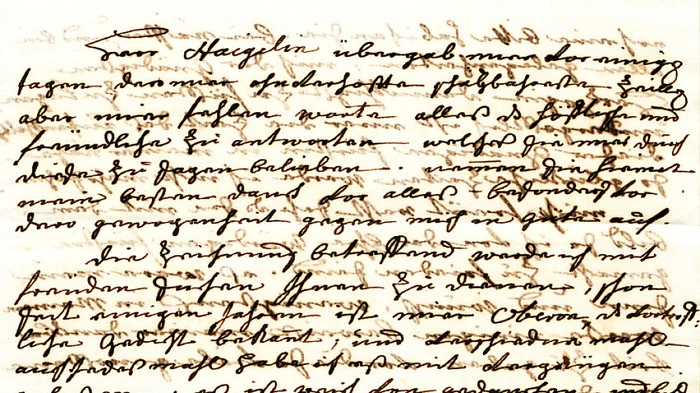 Herr Haegelin übergab mir vor einig
tagen, dero mir ohnverhoffte schäzbahreste Zeilen
aber mir fehlen worte alles so höfliche und
freündliche zu antworten welches sie mir durch
diese zu sagen belieben. nemmen sie hiemit
mein besten danck vor alles besonders vor
dero gewogenheit gegen mich in gutem auf.
die Zeichnung betreffend werde ich mit
freüden suchen Ihnen zu dienen, schon
seit einigen Jahren ist mir Oberon, das vortreff-
liche gedicht bekant, und verschiedne mahl
auf jedesmahl habe ich es mit vergnügen
es ist der gedancken